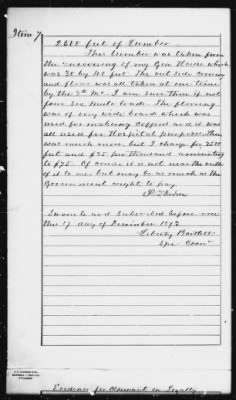 Item 7
2500 feet of Lumber
This lumber was taken from
the covering of my Gin House which
was 30 by 40 feet. The out side covering
and floor was all taken at one time
by the 3rd Mo. I am sure three if not
four six mule loads. The flooring
was of very wide board which was
used for making coffins and it was
all used for Hospital purposes. There
was much more but I charge for 2500
feet and $30 per thousand amounting
to $75. Of course it is not near the worth
of it to me but may be as much as the
Government ought to pay
Sworn to and Subscribed before me
this 17 day of December 1872
Liberty Bartlett
Spe. Comr
Evidence for Claimant in Loyalty